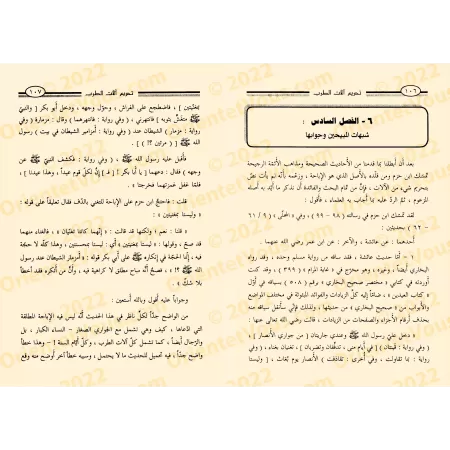 ١٠٦ تحريم آلات الطرب
٦ - الفصل السادس :
شبهات المبيحين وجوابها
بعد أن أبطلنا بما قدمنا من الأحاديث الصحيحة ومذاهب الأئمة الرجيحة
تمسك ابن حزم ومن قلده بالأصل الذي هو الإباحة ، وزعمه أنه لم يأت نص
بتحريم شيء من الآلات ، فإن من تمام البحث والفائدة أن نذكر ما أيد به أصله
المزعوم ، ثم الرد عليه بما أجاب به العلماء ، فأقول :
لقد تمسك ابن حزم في رسالته ( ٩٨ – ٩٩ ) ، وفي « المحلى » ( ٩ / ٦١
– ٦٢ ) بحديثين :
أحدهما : عن عائشة ، والآخر : عن ابن عمر رضي الله عنهما .
١ - أما حديث عائشة ، فقد ساقه من رواية مسلم وحده ، وقد رواه
البخاري أيضاً ، وغيره ، وهو مخرج في « غاية المرام » ( ٣٩٩ ) ، وقد كنت
أوردته في كتابي « مختصر صحيح البخاري » برقم ( ٥٠٨ ) بسياقه في أول
« كتاب العيدين » ، ضامًّا إليه كل الزيادات والفوائد المبثوثة في مختلف المواضع
والأبواب من « البخاري » من حديثها ، ولذلك فإني سأنقل سياقه منه
بحذف أرقام الأجزاء والصفحات من الزيادات ، قالت رضي الله تعالى عنها :
« دخل عليّ رسول الله ﷺ وعندي جاريتان [ من جواري الأنصار ] ،
( وفي رواية : قينتان ) [ في أيام منى ، تدففان وتضربان ] ، تغنيان بغناء ، ( وفي
رواية : بما تقاولت ، وفي أخرى : تقاذفت ) الأنصار يوم بُعاث ، [ وليستا
تحريم آلات الطرب ١٠٧
بمغنيتين ] ، فاضطجع على الفراش ، وحوّل وجهه ، ودخل أبو بكر [ والنبي
ﷺ متغشٍّ بثوبه ] فانتهرني ، ( وفي رواية : فانتهرهما ) وقال : مزمارة ( وفي
رواية : مزمار ) الشيطان عند ( وفي رواية : أمزامير الشيطان في بيت ) رسول
الله ﷺ [ ( مرتين ؟! ) ] .
فأقبل عليه رسول الله ﷺ ، ( وفي رواية : فكشف النبي ﷺ عن
وجهه ) ، فقال : دعهما [ يا أبا بكر ! [ فـ ] إن لكل قوم عيداً ، وهذا عيدنا ] ،
فلما غفل غمزتهما فخرجتا » .
قلت : فاحتج ابن حزم على الإباحة للتغني بالدف فقال تعليقاً على قوله :
« ليستا بمغنيتين » :
« قلنا : نعم ، ولكنها قد قالت : « إنهما كانتا تغنيان » ، فالغناء منهما
قد صح ، وقولها : « ليستا بمغنيتين » أي : ليستا بمحسنتين ، وهذا كله لا حجة
فيه ، إنما الحجة في إنكاره ﷺ على أبي بكر قوله : « أمزمار الشيطان عند رسول
الله ﷺ ؟! » ، فصح أنه مباح مطلق لا كراهية فيه ، وأن من أنكره فقد أخطأ
بلا شك » .
وجواباً عليه أقول وبالله أستعين :
من الواضح جدًّا لكل ناظر في هذا الحديث أنه ليس فيه الإباحة المطلقة
التي ادّعاها ، كيف وهي تشمل مع الجواري الصغار – النساء الكبار ، بل
والرجال أيضاً ، كما تشمل كل آلات الطرب ، وكل أيام السنة ! – وهذا خطأ
واضح جدًّا ، فيه تحميل للحديث ما لا يحتمل ، وسببه خطأ آخر أوضح منه وقع